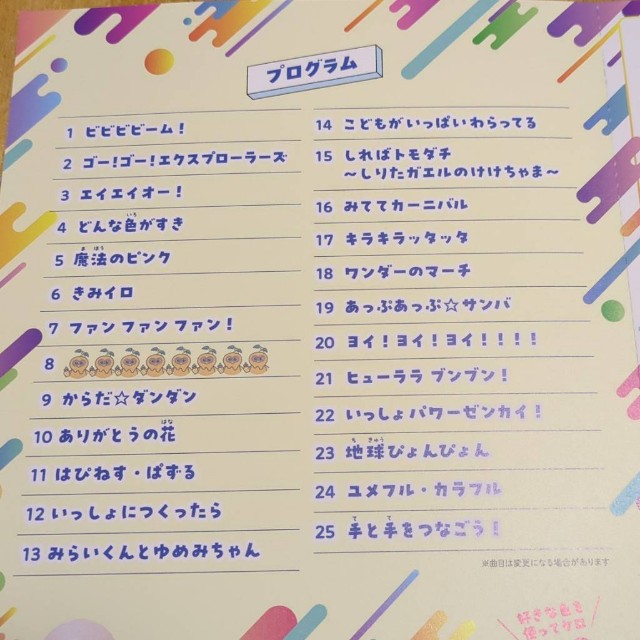 プログラム
1 ビビビビーム！
2 ゴー！ゴー！エクスプローラーズ
3 エイエイオー！
4 どんな色がすき
いろ
5 魔法のピンク
まほう
6 きみイロ
7 ファン ファン ファン！
8
9 からだ☆ダンダン
10 ありがとうの花
はな
11 はぴねす・ぱずる
12 いっしょにつくったら
13 みらいくんとゆめみちゃん
14 こどもがいっぱいわらってる
15 しればトモダチ
～しりたガエルのけけちゃま～
16 みててカーニバル
17 キラキラッタッタ
18 ワンダーのマーチ
19 あっぷあっぷ☆サンバ
20 ヨイ！ヨイ！ヨイ！！！！
21 ヒューララ ブンブン！
22 いっしょパワーゼンカイ！
23 地球ぴょんぴょん
ちきゅう
24 ユメフル・カラフル
25 手と手をつなごう！
て て
※曲目は変更になる場合があります
好きな色を
使ってケロ